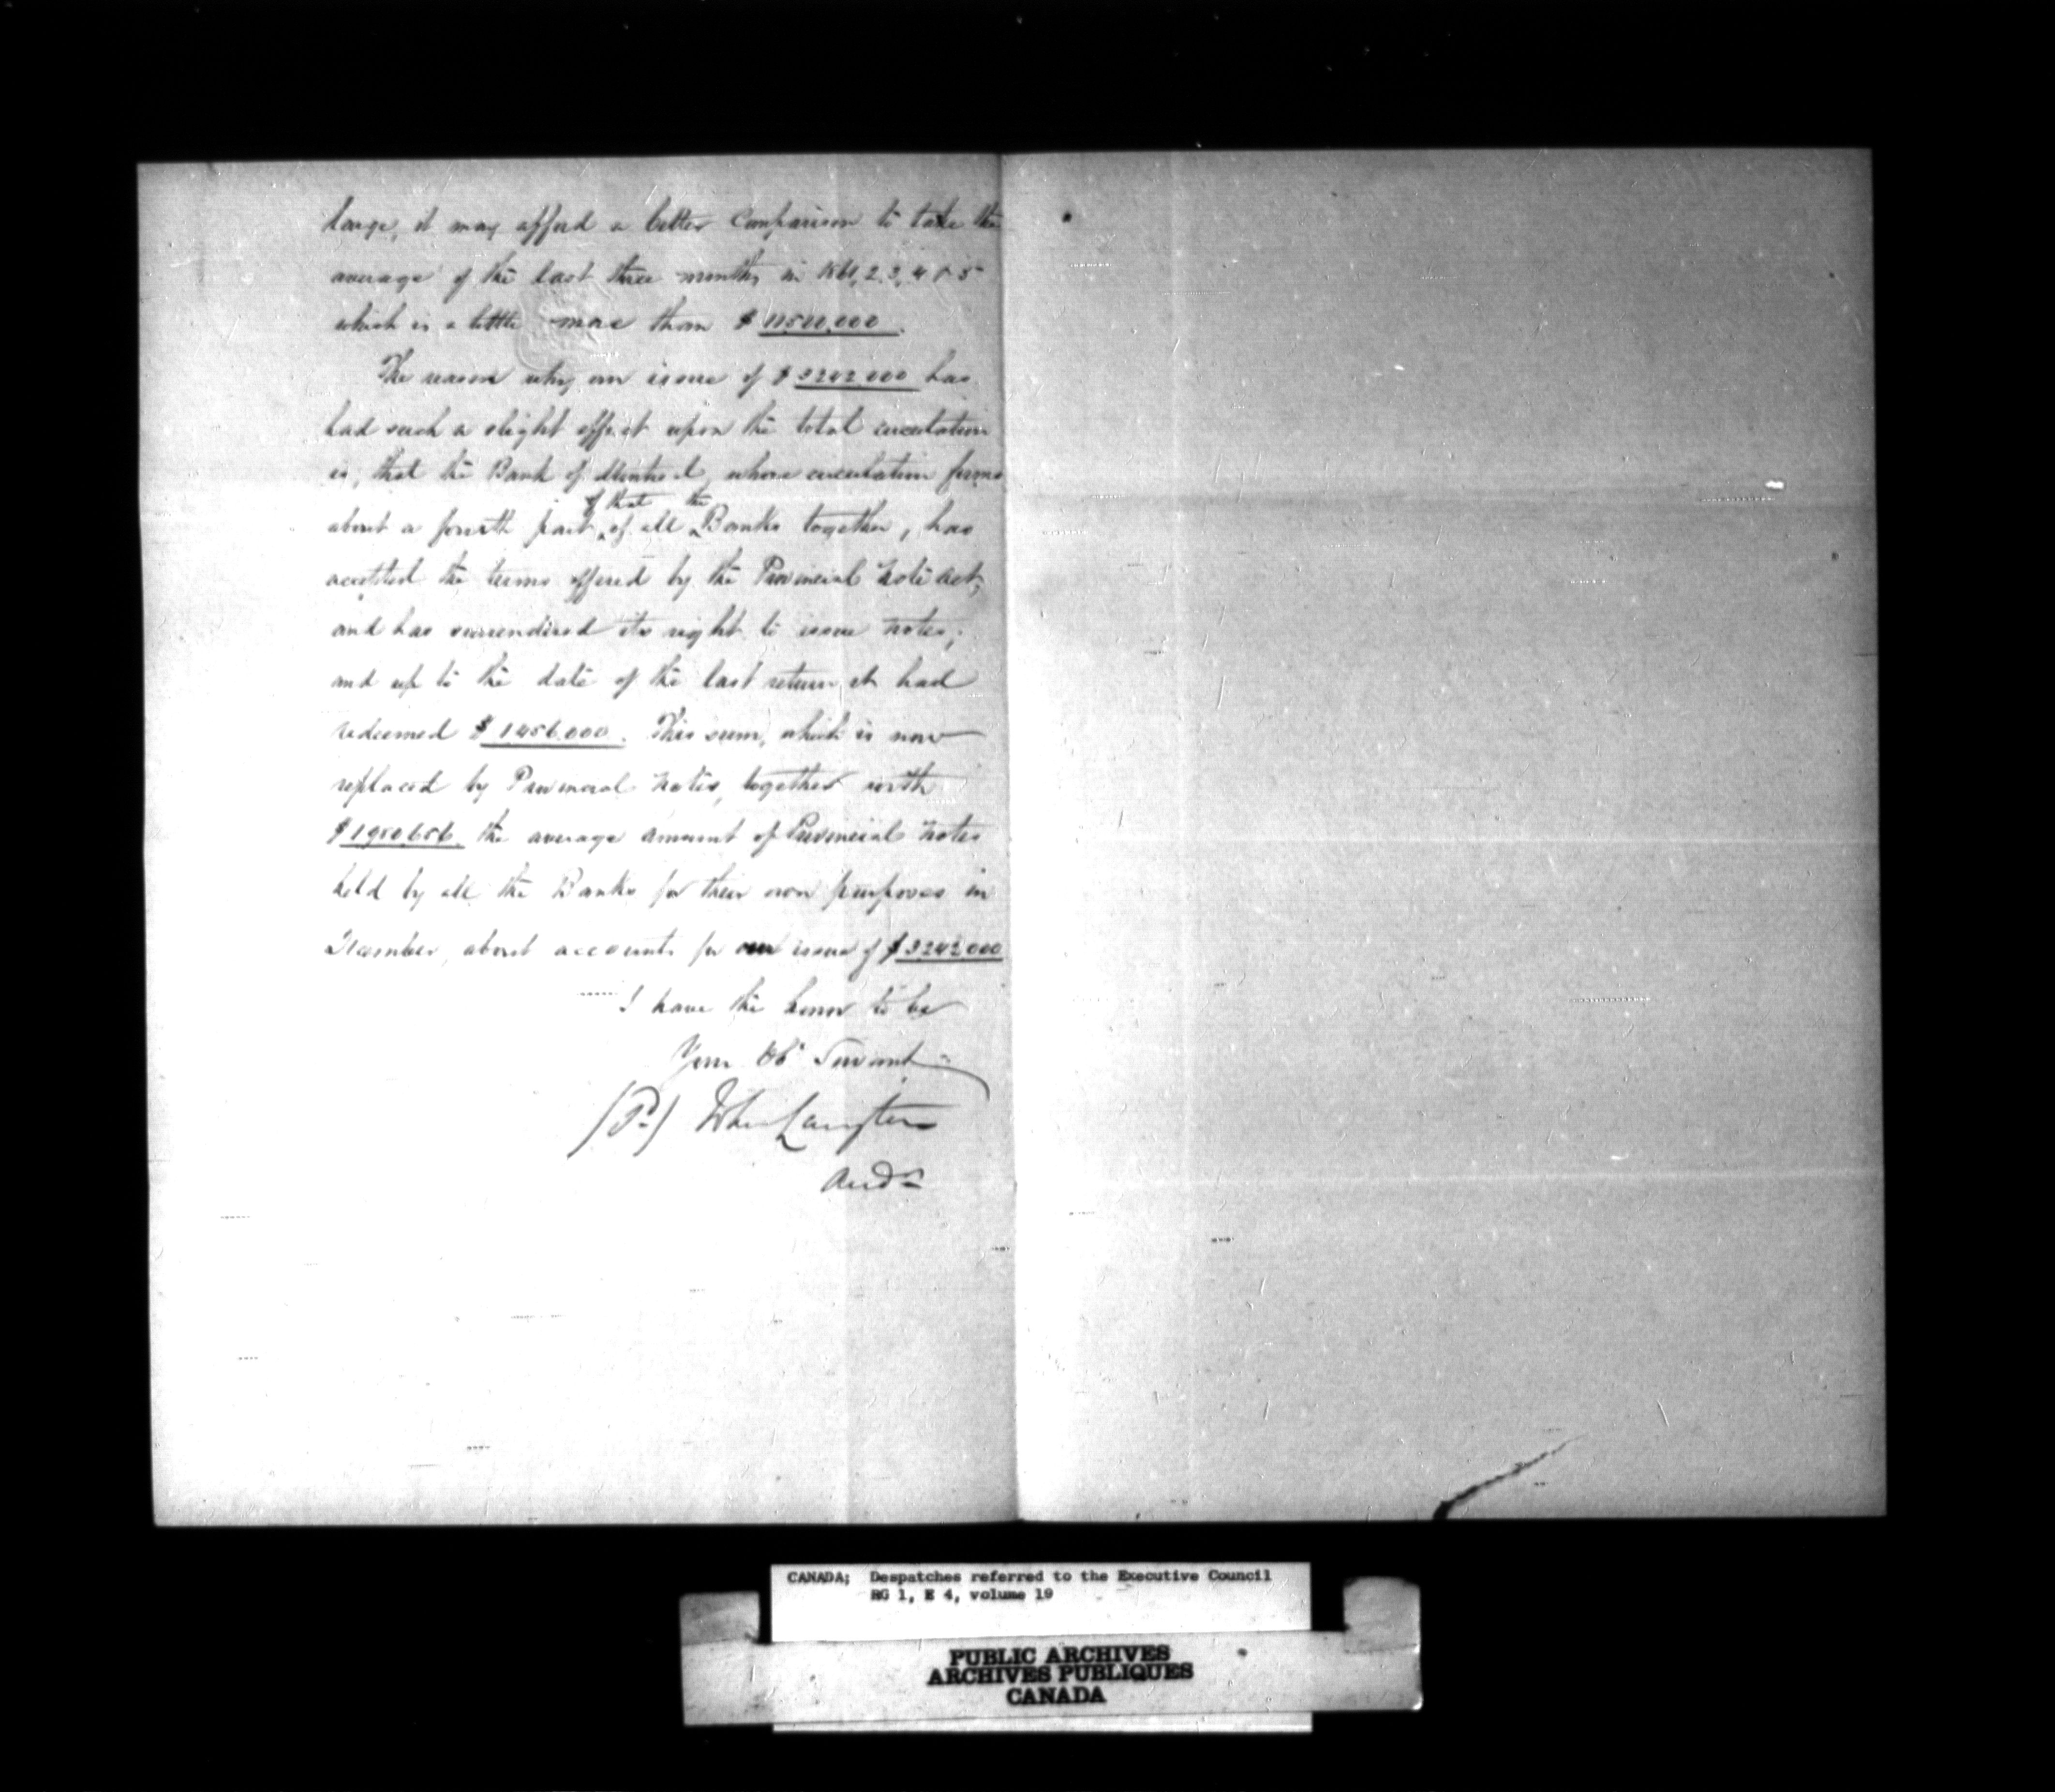 large, it may afford a better Comparison to take the
average of the last three months in 1861, 2, 3, 4 & 5
which is a little more than $
The reason why an issue of $ 3242.000 has
had such a slight effect upon the total circulation
is, that the Bank of Montreal, whose circulation forms
of that the
about a fourth part of all Banks together, has
accepted the terms offered by the Provincial Note Act,
and has surrendered its right to issue notes;
and up to the date of the last return it had
redeemed $ 1.456.000. This sum, which is now
replaced by Provincial Notes, together with
the average amount of Provincial Notes
held by all the Banks for their own purposes in
December, about accounts for our issue of $ 3.242.000
I have the honor to be
Your Obt Servant
John Langton
Audr
CANADA; Despatches referred to the Executive Council
RG 1, E 4, volume 19
PUBLIC ARCHIVES
ARCHIVES PUBLIQUES
CANADA